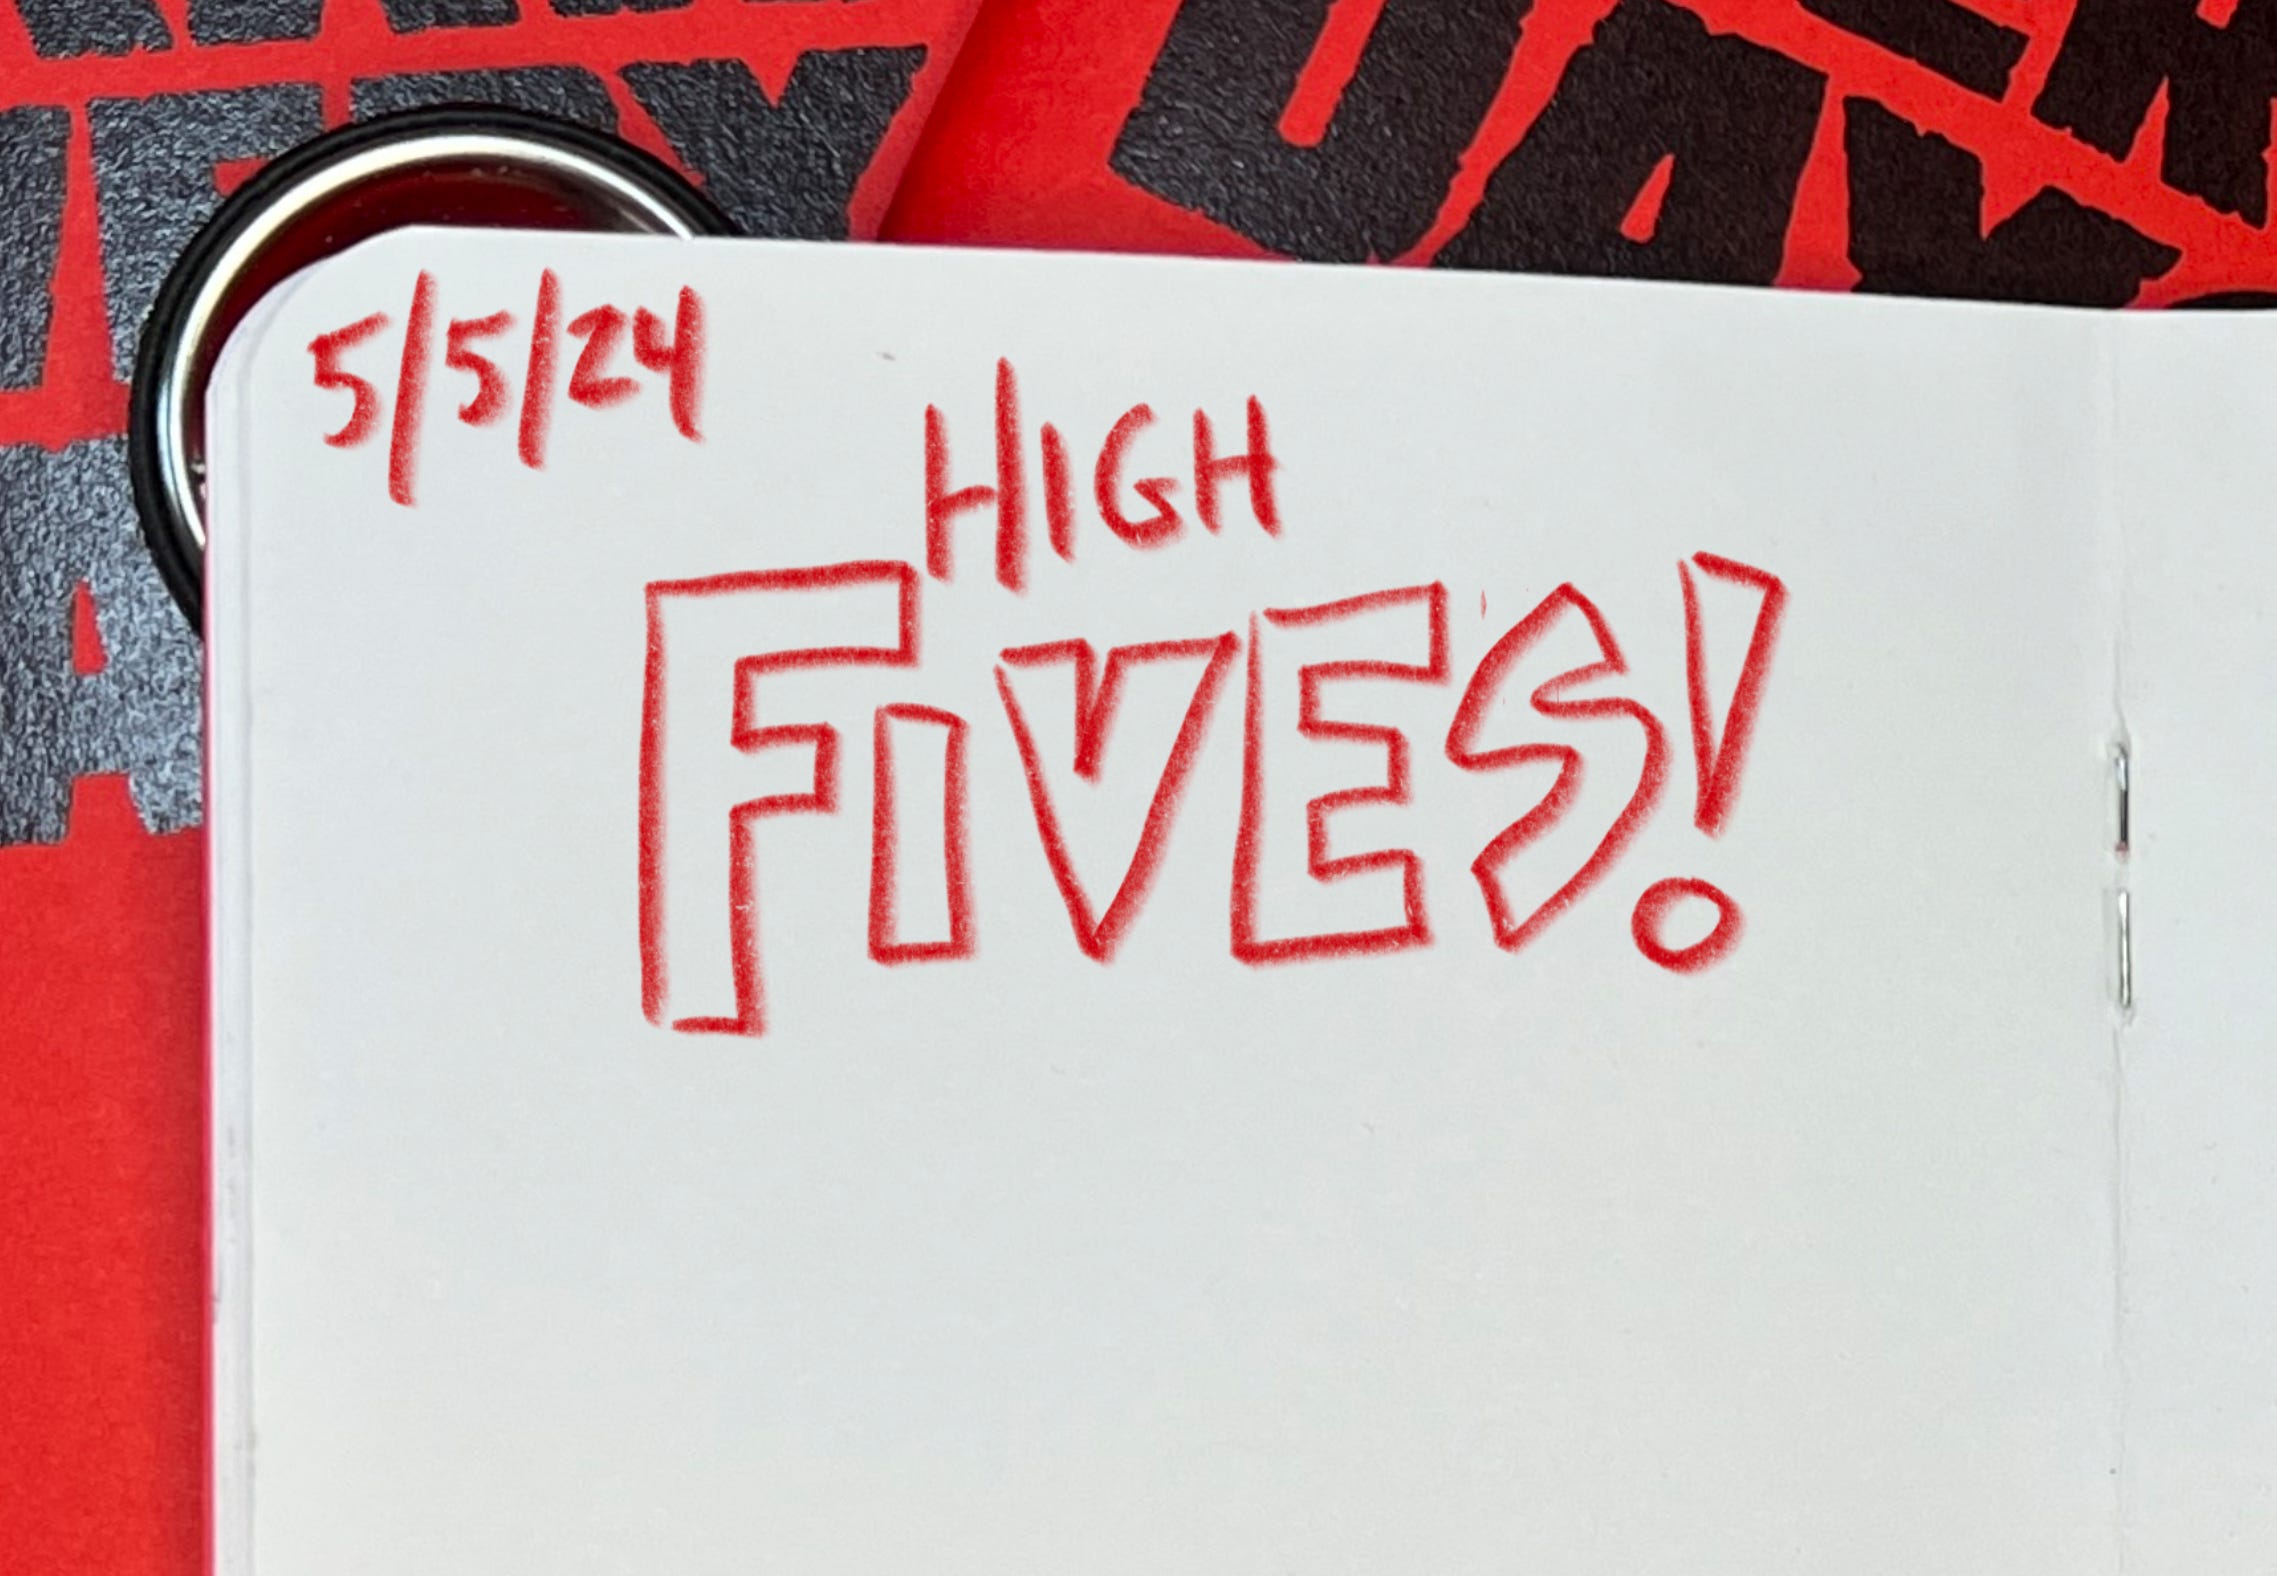 5/5/24
HIGH
FiVES!